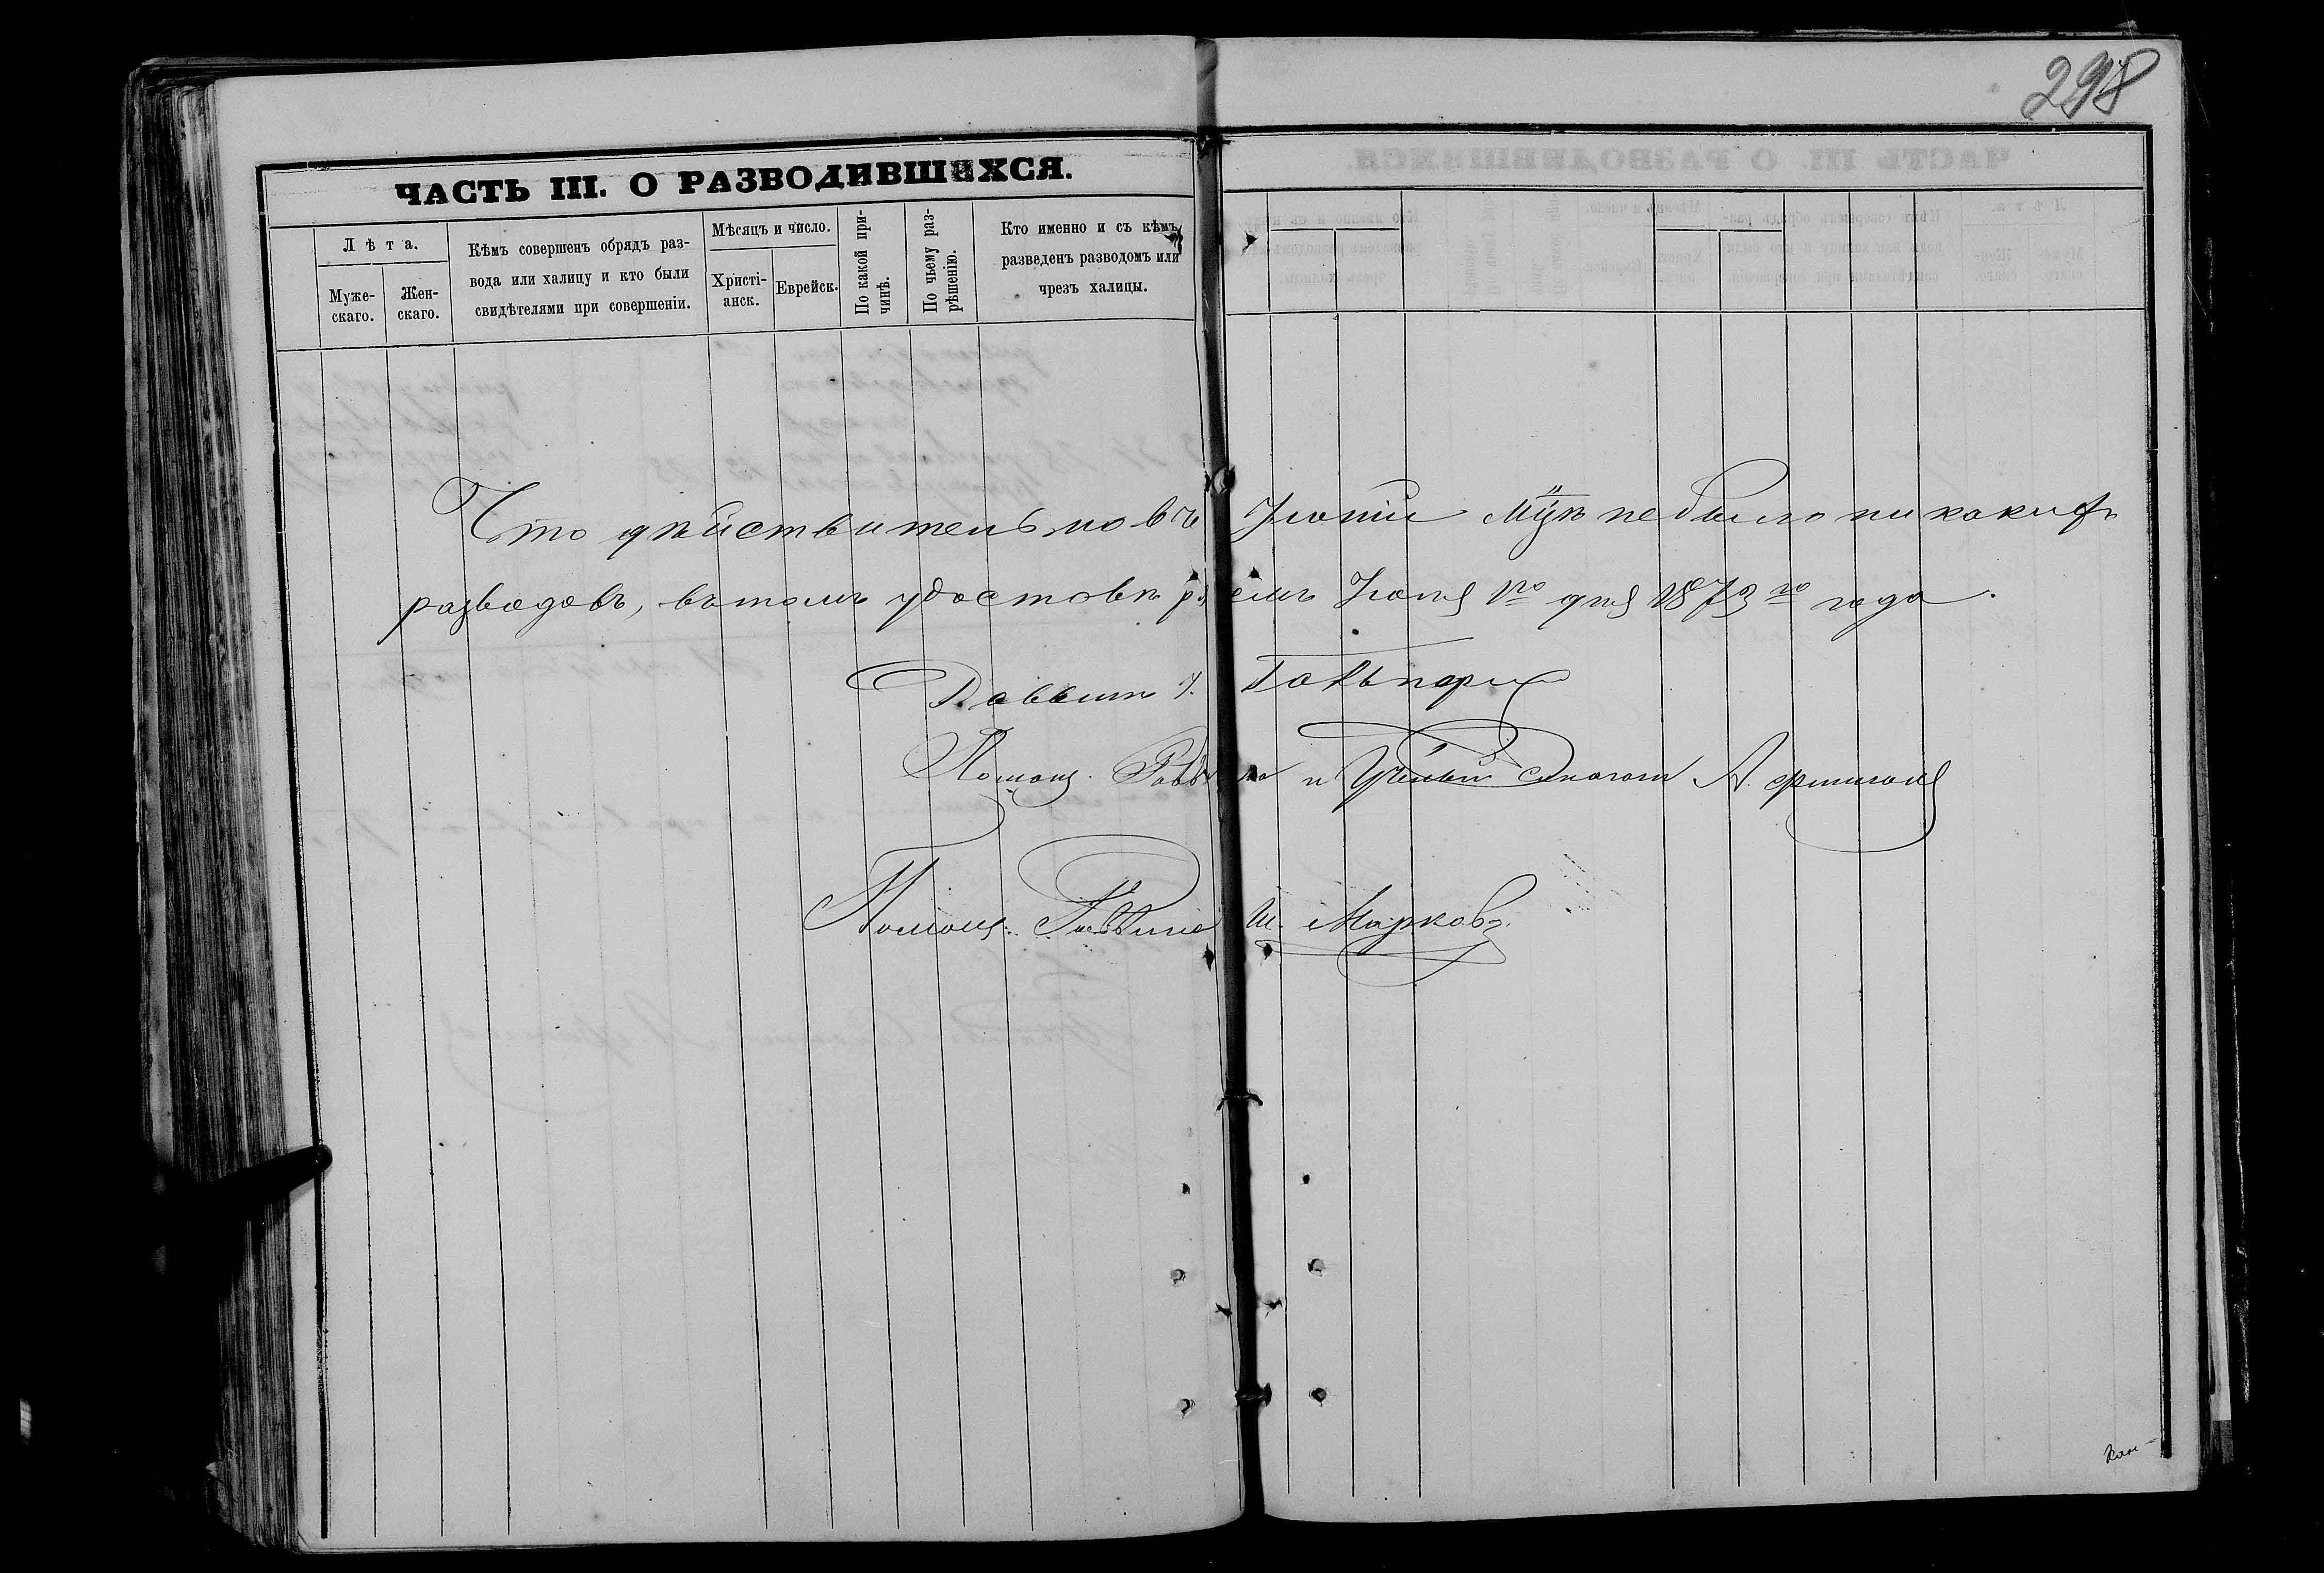 298
ЧАСТЬ III. О РАЗВОДИВШИХСЯ.
Лѣта.
Муже-
скаго.
Жен-
скаго.
Кѣмъ совершенъ обрядъ раз-
вода или халицу и кто были
свидѣтелями при совершеніи.
Мѣсяцъ и число.
Христі-
анск.
Еврейск.
По какой при-
чинѣ.
По чьему раз-
рѣшенію.
Кто именно и съ кѣмъ
разведенъ разводомъ или
чрезъ халицы.
Что дѣйствительно въ Іюнѣ м-цѣ не было никакихъ
разводовъ, въ томъ удостовѣряемъ Іюля 1го дня 1873го года.
Раввинъ Гальперн
Помощ. Раввина и Ученый
Помощ. Раввина Ш. Марковъ.